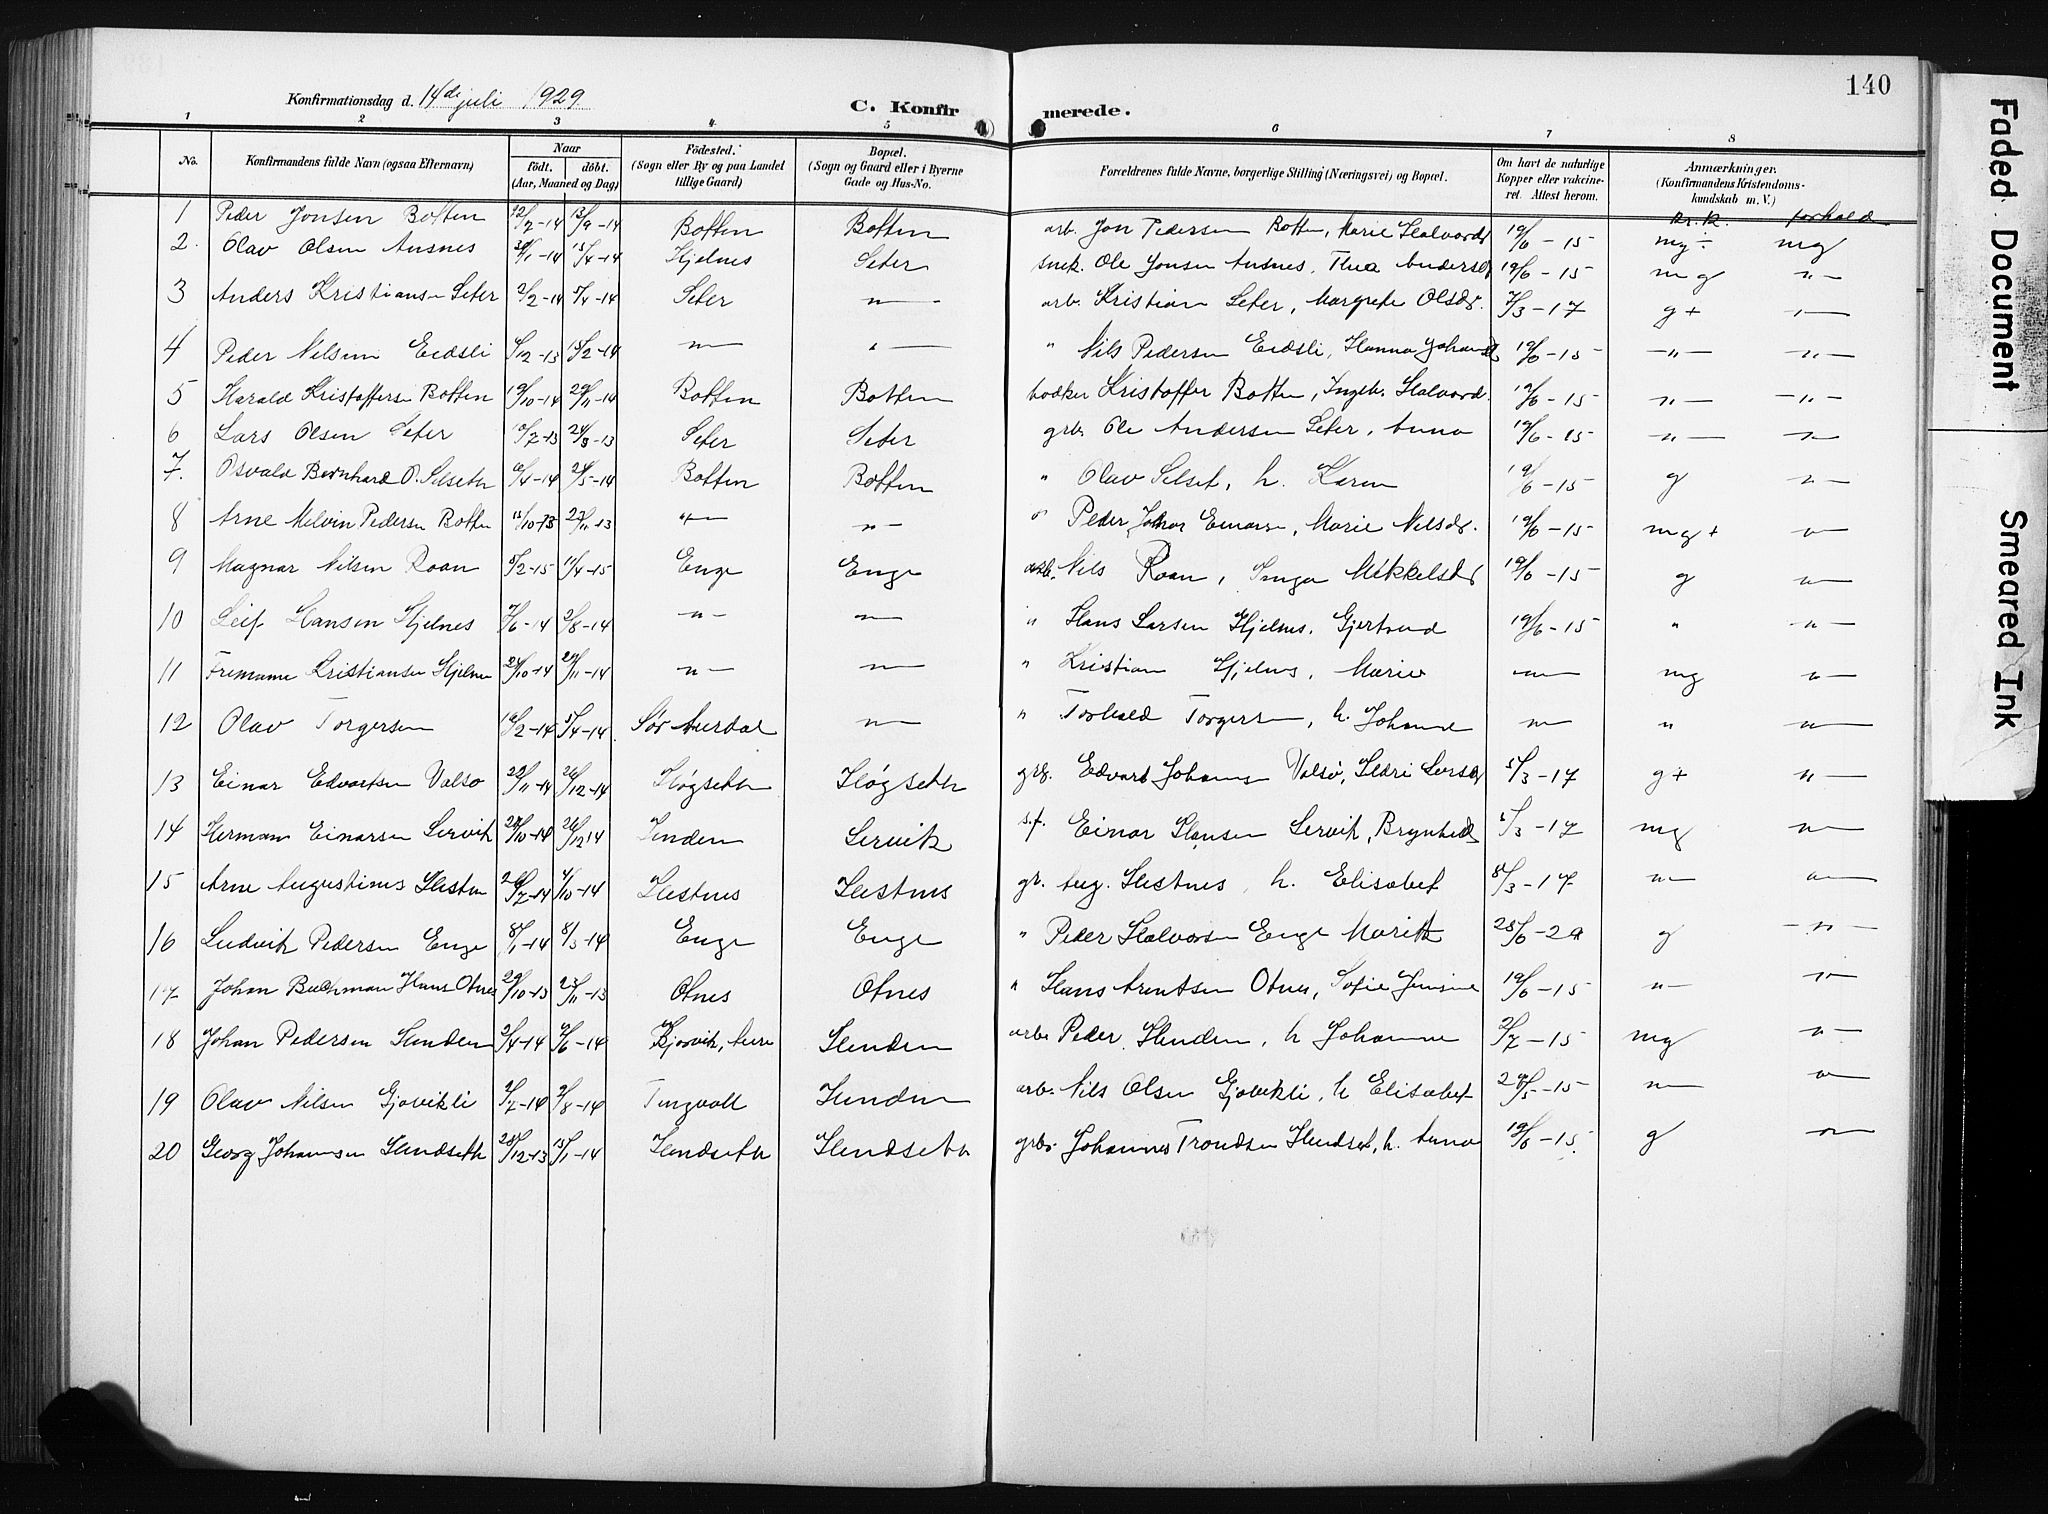 140
Konfirmationsdag d. 14de juli 1929
C. Konfirmerede.
1 2 3 4. 5 6 7 8
No. Konfirmandens fulde Navn (ogsaa Efternavn) Naar født. døbt. (Aar, Maaned og Dag) Fødested. (Sogn eller By og paa Landet tillige Gaard) Bopæl. (Sogn og Gaard eller i Byerne Gade og Hus-No. Forældrenes fulde Navne, borgerlige Stilling (Næringsvei) og Bopæl. Om havt de naturlige Kopper eller vakcineret. Attest herom. Anmærkninger. (Konfirmandens Kristendomskundskab m. V.)
Kr. k. forhold
1 Peder Jonsen Botten 12/7-14 13/9-14 Botten Botten arb. Jon Pedersen Botten, Marie Halvordsd 19/6-15 mg÷ mg
2. Olav Olsen Ausnes 20/1-14 13/4-14 Hjelnes Seter snek. Ole Jonsen Ausnes, Thea Andersd 19/6-15 mg "-
3 Anders Kristiansen Seter 2/2-14 5/4-14 Seter "- arb. Kristian Seter, Margrete Olsdr. 7/3-17 g+ "-
4 Peder Nilsen Eidsli 5/12-13 15/2-14 "- "- " Nils Pedersen Eidsli, Hanna Johansd 19/6-15 -"- "-
5 Harald Kristoffersen Botten 19/10-14 29/11-14 Botten Botten bødker Kristoffer Botten, Ingeb. Halvord. 19/6-15 "- -"-
6 Lars Olsen Seter 10/7-13 24/8-13 Seter Seter grb. Ole Andersen Seter, Anna 19/6-15 "- "-
7. Osvald Bernhard O. Selseth 10/4-14 21/5-14 Botten Botten " Olav Selset, h. Karen 19/6-15 g "-
8 Arne Melvin Pedersen Botten 15/10-13 23/11-13 "- "- " Peder Johan Einarsen, Marie Nilsdr. 19/6-15 mg+ "-
9 Magnar Nilsen Roan 5/2-15 11/4-15 Enge Enge arb. Nils Roan, Inga Mikkelsdr 19/6-15 g "-
10 Leif Hansen Hjelnes 7/6-14 2/8-14 -"- -"- " Hans Larsen Hjelnes, Gjertrud 19/6-15 " -"-
11 Kristiansen Hjelnes 24/10-14 29/11-14 "- -"- " Kristian Hjelnes, Marie -"- mg "-
12 Olav Torgersen 16/2-14 5/4-14 Sør Aurdal -"- " Torvald Torgersen, h. Johanne "- " "-
13 Einar Edvartsen Valsø 22/11-14 26/12-14 Høgseth Høgseth grb. Edvart Johansen Valsø, Larsd 5/3-17 g+ "-
14 Herman Einarsen Servik 28/10-14 26/12 14 Henden Servik s.f. Einar Hansen Servik, Brynhild 5/3-17 mg "-
15 Arne Augustinus Hestnes 26/7-14 4/10-14 Hestnes Hestnes gr. Aug. Hestnes, h. Elisabet 5/3-17 "- "-
16 Ludvik Pedersen Enge 8/1-14 8/3-14 Enge Enge " Peder Halvorsen Enge Marith 28/6-29 g -"-
17 Johan Hans Otnes 29/10-13 23/11-13 Otnes Otnes " Hans Arentsen Otnes, Sofie Jensine 19/6-15 "- "-
18 Johan Pedersen Henden 2/4-14 9/6-14 Aure Henden arb. Peder Henden, h Johanne 2/7-15 mg "-
19 Olav Nilsen Gjøvikli 2/7-14 2/8-14 Tingvoll Henden arb. Nils Olsen Gjøvikli, h Elisabet 28/5-15 "- "-
20 Georg Johansen Hendseth 28/12-13 18/1-14 Hendseth Hendseth grb. Johannes Trondsen Hendset, h. Anna 19/6-15 g "-
Faded Document
Smeared Ink